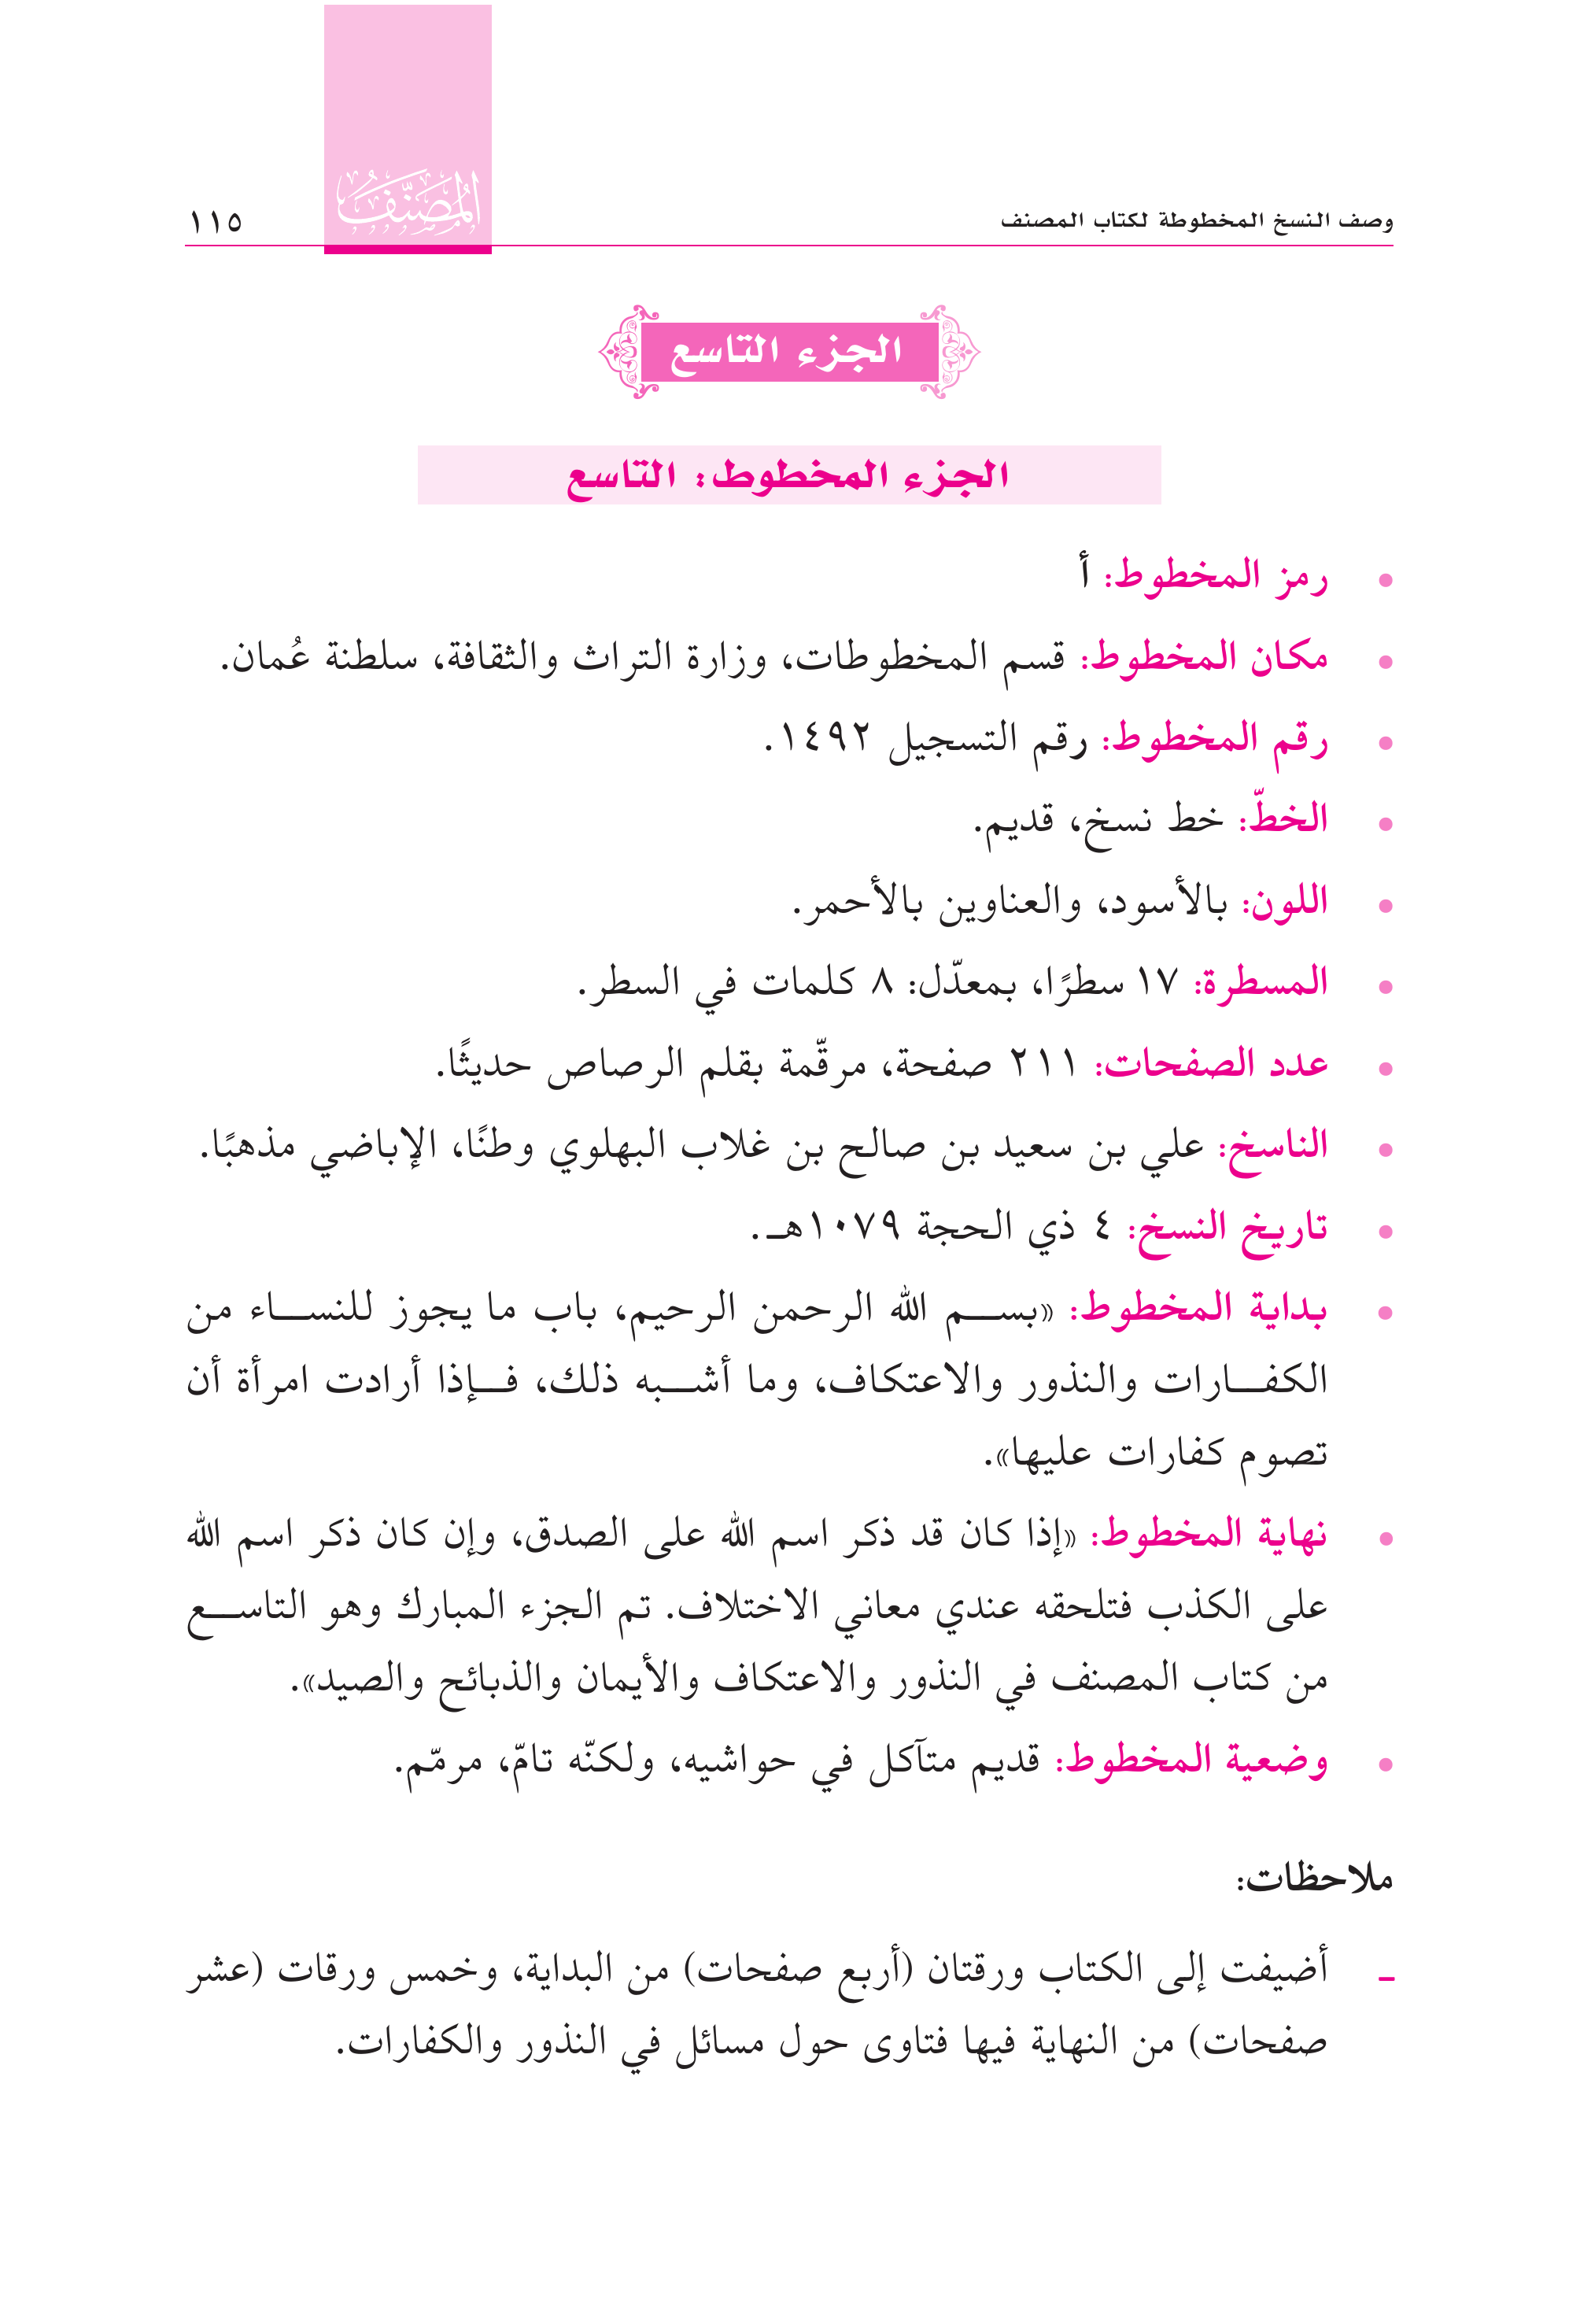 وصف النسخ المخطوطة لكتاب المصنف
المُصَنَّفُ
١١٥
الجزء التاسع
الجزء المخطوط: التاسع
• رمز المخطوط: أ
• مكان المخطوط: قسم المخطوطات، وزارة التراث والثقافة، سلطنة عُمان.
• رقم المخطوط: رقم التسجيل ١٤٩٢.
• الخطّ: خط نسخ، قديم.
• اللون: بالأسود، والعناوين بالأحمر.
• المسطرة: ١٧ سطرًا، بمعدّل: ٨ كلمات في السطر.
• عدد الصفحات: ٢١١ صفحة، مرقّمة بقلم الرصاص حديثًا.
• الناسخ: علي بن سعيد بن صالح بن غلاب البهلوي وطنًا، الإباضي مذهبًا.
• تاريخ النسخ: ٤ ذي الحجة ١٠٧٩هـ.
• بداية المخطوط: «بسم الله الرحمن الرحيم، باب ما يجوز للنساء من
الكفارات والنذور والاعتكاف، وما أشبه ذلك، فإذا أرادت امرأة أن
تصوم كفارات عليها».
• نهاية المخطوط: «إذا كان قد ذكر اسم الله على الصدق، وإن كان ذكر اسم الله
على الكذب فتلحقه عندي معاني الاختلاف. تم الجزء المبارك وهو التاسع
من كتاب المصنف في النذور والاعتكاف والأيمان والذبائح والصيد».
• وضعية المخطوط: قديم متآكل في حواشيه، ولكنّه تامّ، مرمّم.
ملاحظات:
ـ أضيفت إلى الكتاب ورقتان (أربع صفحات) من البداية، وخمس ورقات (عشر
صفحات) من النهاية فيها فتاوى حول مسائل في النذور والكفارات.